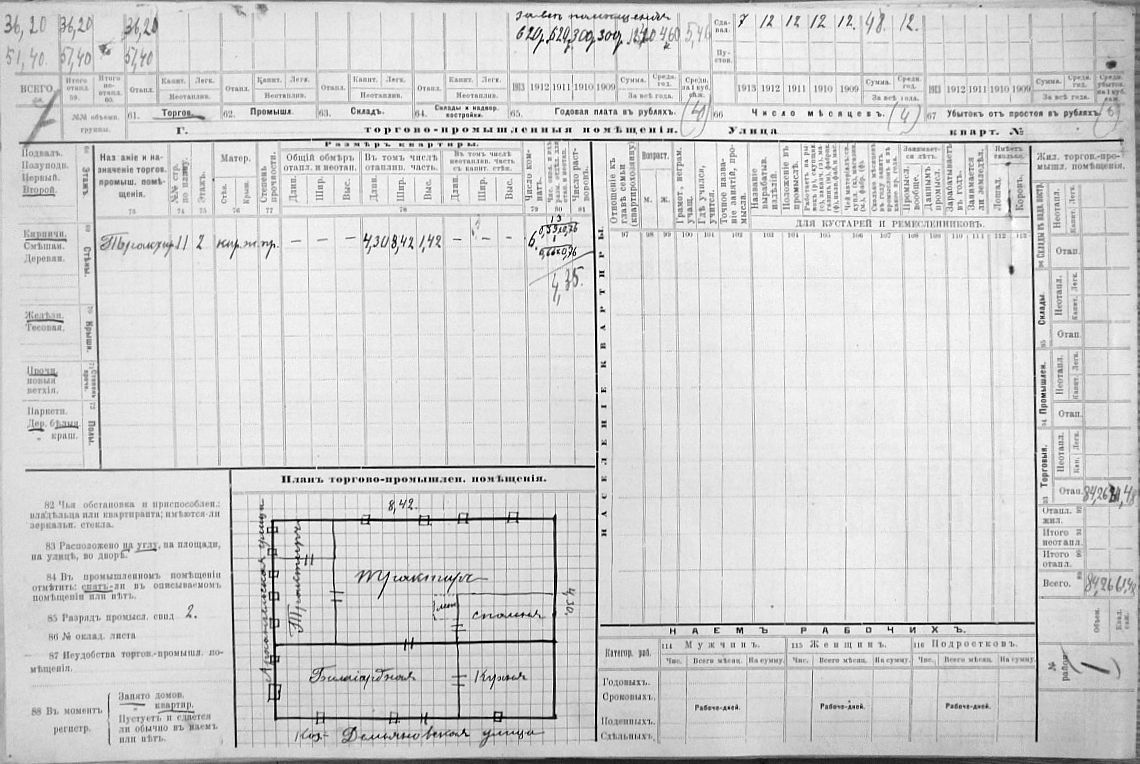 36,20 36,20 36,20
51,40. 51,40 51,40.
за всѣ помѣщенія
620р. 620р. 300р 300р 460 5,46
Сда-вал. 7 12 12 12 12. 48. 12.
Пу-стов.
ВСЕГО.
Итого отапл. 59.
Итого не-отапл. 60.
Отапл. Капит. Легк. Неотаплив.
Отапл. Капит. Легк. Неотаплив.
Отапл. Капит. Легк. Неотаплив.
Отапл. Капит. Легк. Неотаплив.
1913 1912 1911 1910 1909 Сумма. Средн. год. За всѣ года.
1913 1912 1911 1910 1909 Сумма. Средн. год. За всѣ года.
1913 1912 1911 1910 1909 Сумма. Средн. год. За всѣ года.
№№ объемн. группы.
61. Торгов.
62. Промышл.
63. Складъ.
64. Склады и надвор. постройки.
65. Годовая плата въ рубляхъ. (4)
66 Число мѣсяцевъ. (4)
67 Убытокъ отъ простоя въ рубляхъ.
Г. торгово-промышленныя помѣщенія. Улица кварт. №
Подвалъ.
Полуподв.
Первый.
Второй.
68 Этажъ.
Кирпичн.
Смѣшан.
Деревян.
69 Стѣны.
Желѣзн.
Тесовая.
70 Крыши.
Прочн.
новыя
ветхія.
Паркетн.
Дер. бѣлыя
" краш.
72 Полы.
Размѣръ квартиры.
Названіе и назначеніе торгов. промыш. помѣщенія.
№№ стр. по плану.
Этажъ.
Матер.
Стѣн. Крыш.
Степень прочности.
Общій обмѣръ отапл. и неотап.
Длин. Шир. Выс.
Въ томъ числѣ отаплив. часть.
Длин. Шир. Выс.
Въ томъ числѣ неотаплив. часть съ капит. стѣн.
Длин. Шир. Выс.
Число комнатъ.
73 74 75 76 77 78 79 80 81
Трактир 11 2 кир. ж. пр. — — — 4,30 8,42 1,42 — — — 6.
13
0,33х0,76
1
0,66х0,76
4,35.
НАСЕЛЕНІЕ КВАРТИРЫ.
Отношеніе къ главѣ семьи (квартирохозяину)
Возраст.
м. ж.
Грамот., неграм. учащ.
Гдѣ учился, учится.
Точное названіе занятій, промысла.
Названіе вырабатыв. издѣлій.
Положеніе въ промыслѣ.
Занимается лѣт.
Промысл. вообще.
Даннымъ промысл.
Зарабатываетъ въ годъ.
Занимается ли земледѣл.
Имѣетъ сколько.
Лошад.
Коровъ.
ДЛЯ КУСТАРЕЙ И РЕМЕСЛЕННИКОВЪ.
97 98 99 100 101 102 103 104 105 106 107 108 109 110 111 112 113
Жил. торгов.-промышл. помѣщенія.
96 Склады въ надв. пост. Неотапл. Капит. Легк.
Отап.
95 Склады. Неотапл. Капит. Легк.
Отап.
94 Промышлен. Неотапл. Капит. Легк.
Отап.
93 Торговыя. Неотапл. Кап. Легк.
Отап.
Отапл. жил. 92
Итого неотапл. 91
Итого отапл. 90
Всего. 89
Объем.
Квад. саж.
№ район.
1
82 Чья обстановка и приспособлен.: владѣльца или квартиранта; имѣются-ли зеркальн. стекла.
83 Расположено на углу, на площади, на улицѣ, во дворѣ.
84 Въ промышленномъ помѣщеніи отмѣтить: спятъ-ли въ описываемомъ помѣщеніи или нѣтъ.
85 Разрядъ промысл. свид. 2.
86 № оклад. листа
87 Неудобства торгов.-промышл. помѣщенія.
88 Въ моментъ регистр.
Занято домов.
" квартир.
Пустуетъ и сдается ли обычно въ наемъ или нѣтъ.
Планъ торгово-промышлен. помѣщенія.
8,42.
Трактиръ
Трактиръ
4,30.
спальня
Билліардная
Кухня
Коз- Демьяновская улица
НАЕМЪ РАБОЧИХЪ.
Категор. раб.
114 Мужчинъ.
115 Женщинъ.
116 Подростковъ.
Чис. Всего мѣсяц. На сумму.
Чис. Всего мѣсяц. На сумму.
Чис. Всего мѣсяц. На сумму.
Годовыхъ.
Сроковыхъ.
Рабоче-дней. Рабоче-дней. Рабоче-дней.
Поденныхъ.
Сдѣльныхъ.